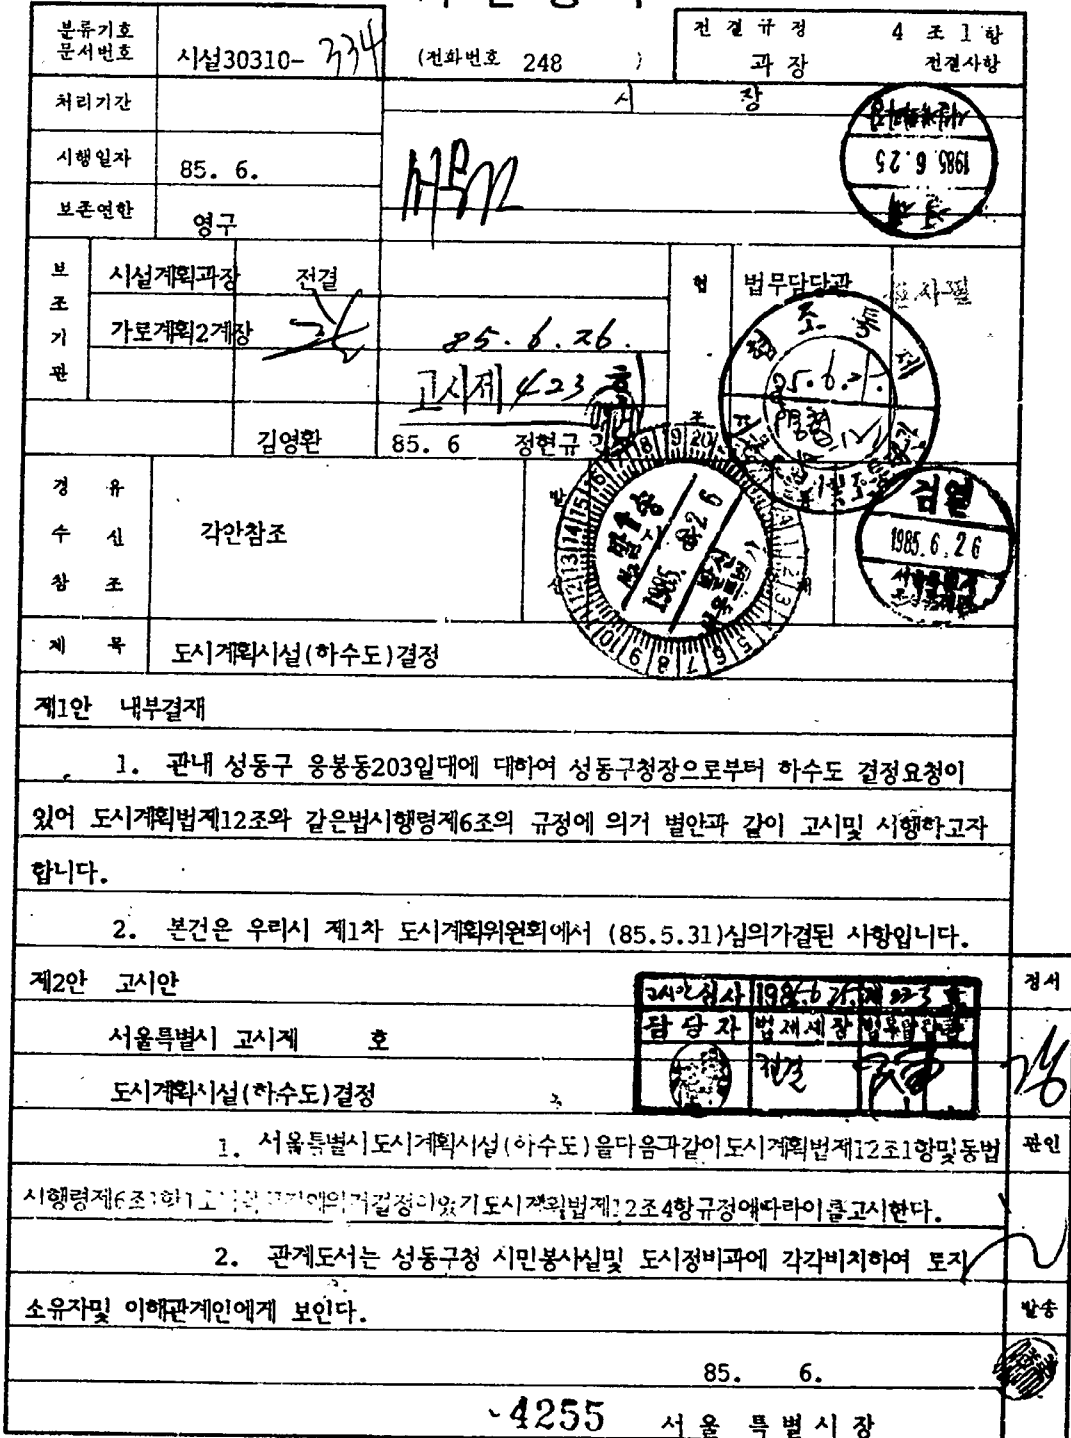 분류기호
문서번호
시설30310-334
(전화번호 248 )
전결규정 4조1항
과장 전결사항
처리기간
시 장
시행일자
85. 6.
1985. 6. 25
보존연한
영구
보조기관
시설계획과장 전결
협조
법무담당관
가로계획2계장
85. 6. 26.
고시제 423
김영환 85. 6 정현규
경유
수신
참조
각안참조
발신
발송
1985. 6. 26
검열
1985. 6. 26
제목
도시계획시설(하수도)결정
제1안 내부결재
1. 관내 성동구 응봉동203일대에 대하여 성동구청장으로부터 하수도 결정요청이
있어 도시계획법제12조와 같은법시행령제6조의 규정에 의거 별안과 같이 고시및 시행하고자
합니다.
2. 본건은 우리시 제1차 도시계획위원회에서 (85.5.31)심의가결된 사항입니다.
제2안 고시안
정서
고시안심사
담당자
전결
서울특별시 고시제 호
도시계획시설(하수도)결정
1. 서울특별시도시계획시설(하수도)을다음과같이도시계획법제12조1항및동법
관인
시행령제6조1항 결정이있기도시계획법제12조4항규정에따라이를고시한다.
2. 관계도서는 성동구청 시민봉사실및 도시정비과에 각각비치하여 토지
소유자및 이해관계인에게 보인다.
발송
85. 6.
4255
서울특별시장